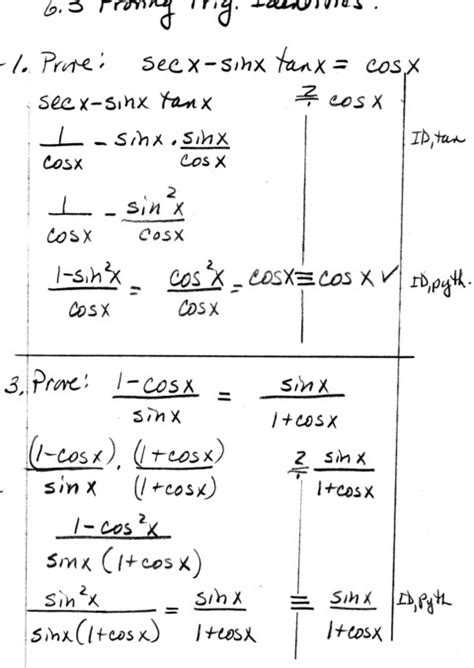 6.3 Proving Trig. Identities.
1. Prove: sec x - sin x tan x = cos x
sec x - sin x tan x ≟ cos x
1/cos x - sin x · sin x/cos x ID, tan
1/cos x - sin²x/cos x
1-sin²x/cos x = cos²x/cos x = cos x ≡ cos x ✓ ID, pyth.
3. Prove: 1-cos x/sin x = sin x/1+cos x
(1-cos x)/sin x · (1+cos x)/(1+cos x) ≟ sin x/1+cos x
1-cos²x/sin x (1+cos x)
sin²x/sin x(1+cos x) = sin x/1+cos x ≡ sin x/1+cos x ID, pyth